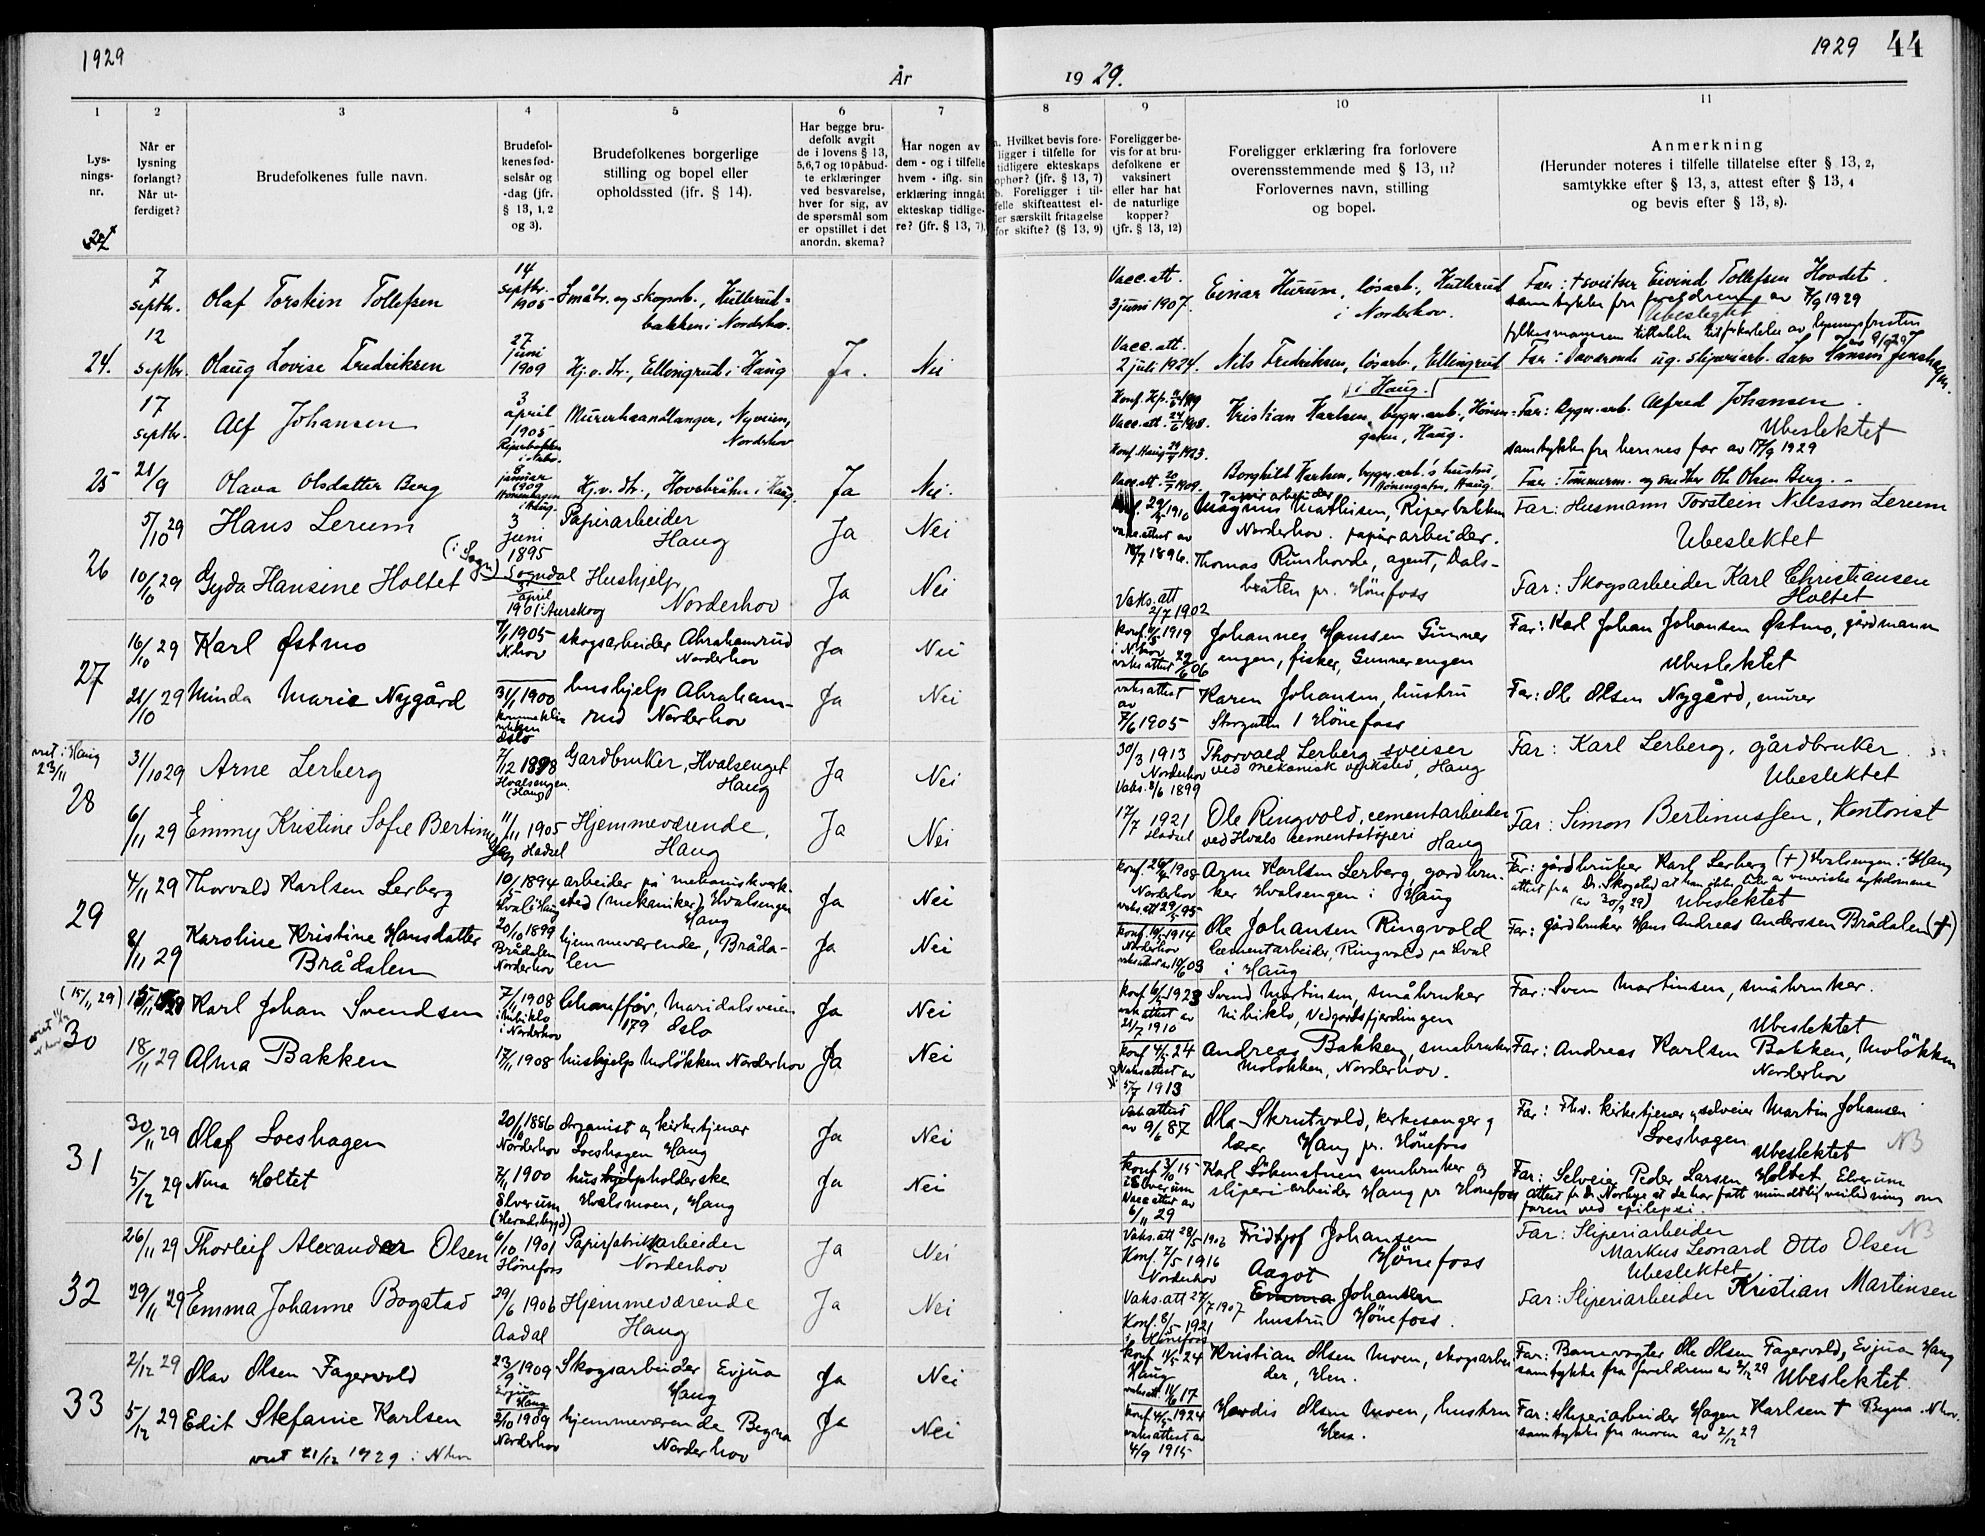 1929
År
19 29.
1929 44
1
2
3
4
5
6
7
8
9
10
11
Lys-
nings-
nr.
Når er
lysning
forlangt?
Når ut-
ferdiget?
Brudefolkenes fulle navn.
Brudefol-
kenes fød-
selsår og
-dag (jfr.
§ 13, 1, 2
og 3).
Brudefolkenes borgerlige
stilling og bopel eller
opholdssted (jfr. § 14).
Har begge bru-
defolk avgit
de i lovens § 13,
5,6,7 og 10 påbud-
te erklæringer
ved besvarelse,
hver for sig, av
de spørsmål som
er opstillet i det
anordn. skema?
Har nogen av
dem - og i tilfelle
hvem - iflg. sin
erklæring inngåt
ekteskap tidlige-
re? (jfr. § 13, 7).
a. Hvilket bevis fore-
ligger i tilfelle for
tidligere ekteskaps
ophør? (jfr. § 13, 7)
b. Foreligger i til-
felle skifteattest el-
ler særskilt fritagelse
for skifte? (§ 13, 9)
Foreligger be-
vis for at bru-
defolkene er
vaksinert
eller har hat
de naturlige
kopper?
(jfr. § 13, 12)
Foreligger erklæring fra forlovere
overensstemmende med § 13, 11?
Forlovernes navn, stilling
og bopel.
Anmerkning
(Herunder noteres i tilfelle tillatelse efter § 13, 2,
samtykke efter § 13, 3, attest efter § 13, 4
og bevis efter § 13, 8).
7
septbr.
Olaf Torstein Tollefsen
14
septbr.
1905
Småbr. og skogsarb., Hullerud-
bakken i Norderhov.
Vacc. att.
3 juni 1907.
Einar Hurum, løsarb., Hullerud
i Norderhov.
Far: † sveitser Eivind Tollefsen Hovdet.
samtykke fra foreldrene av 7/9 1929
Ubeslektet
24.
12
septbr.
Olaug Lovise Fredriksen
27
juni
1909
Hj.v. dtr., Ellingrud i Haug
Ja.
Nei
Vacc. att.
2 juli 1924.
Nils Fredriksen, løsarb., Ellingrud
i Haug.
17
septbr.
Alf Johansen
3
april
1905
Murerhaandlanger, Nyveien,
Norderhov
Kristian Karlsen, bygn.arb., Hønen-
gaten, Haug.
Far: Bygn.arb. Alfred Johansen.
Ubeslektet
samtykke fra hennes far av 17/9 1929
25
21/9
Olava Olsdatter Berg
8
januar
1909
Hj.v. dtr., Hovsbråtn i Haug.
Ja
Nei.
Borghild Karlsen, bygn.arb.'s hustru,
Hønengaten, Haug.
Far: Tømmerm. og snekker Ole Olsen Berg.
26
5/10 29
Hans Lerum
(i Sogn)
3
Juni
1895
Sogndal
Papirarbeider
Haug
Ja
Nei
Magnus Mathisen, Riperbakken
Norderhov. papirarbeider.
Far: Husmann Torstein Nilsson Lerum
Ubeslektet
10/10 29
Gyda Hansine Holtet
april
1901 i Aurskog
Hushjelp
Norderhov
Ja
Nei
Vaks. att
2/7 1902
Thomas Runhovde, agent, Dals-
bråten pr. Hönefoss
Far: Skogsarbeider Karl Christiansen
Holtet
27
16/10 29
Karl Østmo
7/1 1905
N.hov
skogsarbeider Abrahamrud
Norderhov
Ja
Nei
Johannes Hanssen Gunner
engen, fisker, Gunnerengen
Far: Karl Johan Johansen Østmo, gårdmann
Ubeslektet
21/10 29
Minda Marie Nygård
31/1 1900
Oslo
hushjelp Abraham-
rud Norderhov
Ja
Nei
vaks attest
av
7/6 1905
Karen Johansen, hustru
Storgaten 1 Hönefoss
Far: Ole Olsen Nygård, murer
28
viet i Haug
23/11
31/10 29
Arne Lerberg
7/12 1898
Hvalsengen
(Haug)
Gardbruker, Hvalsenget
Haug
Ja
Nei
30/3 1913
Norderhov
Vaks. 8/6 1899
Thorvald Lerberg sveiser
ved mekanisk verksted, Haug
Far: Karl Lerberg, gårdbruker
Ubeslektet
6/11 29
Emmy Kristine Sofie Bertinussen
11/11 1905
Hadsel
Hjemmeværende,
Haug
Ja
Nei
17/7 1921
Hadsel
Ole Ringvold, cementarbeider
ved Hvals cementstøperi
Haug
Far: Simon Bertinussen, Kontorist
29
4/11 29
Thorvald Karlsen Lerberg
10/5 1894
Hval i Haug
arbeider på mekanisk verk-
sted (mekaniker) Hvalsengen
Haug
Ja
Nei
konf. 26/4 1908
Norderhov
vaks.att 29/5 95
Arne Karlsen Lerberg, gardbru-
ker Hvalsengen i Haug
Far: gårdbruker Karl Lerberg (+) Hvalsengen i Haug
attest fra Dr. Skogstad at han ikke lider av veneriske sykdomme
(av 30/9 29) Ubeslektet
8/11 29
Karoline Kristine Hansdatter
Brådalen
20/10 1899
Brådalen
Norderhov
hjemmeværende, Bråda-
len
Ja
Nei
Ole Johansen Ringvold
Cementarbeider, Ringvold på Hval
i Haug
Far: gårdbruker Hans Andreas Anderssen Brådalen (+)
30
(15/11 29)
Karl Johan Svendsen
7/11 1908
i Nibiklo
i Norderhov
Chauffør, Maridalsveien
179 Oslo
Ja
Nei
vaks attest av
21/7 1910
Svend Martinsen, småbruker
Nibiklo, Vedgårdsfjerdingen
Far: Sven Martinsen, småbruker.
Ubeslektet
18/11 29
Alma Bakken
17/11 1908
hushjelp Moløkken Norderhov
Ja
Nei
konf 4/5 24
Vaks attest av
5/7 1913
Andreas Bakken, småbruker
Moløkken, Norderhov.
Far: Andreas Karlsen Bakken, Moløkken
Norderhov
31
30/11 29
Olaf Loeshagen
20/10 1886
Norderhov
Organist og kirketjener
Loeshagen Haug
Ja
Nei
vak attest
av 9/6 87
Ola Skrutvold, kirkesanger og
lærer Haug pr. Hönefoss
Far: Fhv. kirketjener og selveier Martin Johansen
Loeshagen
Ubeslektet NB
5/12 29
Nina Holtet
7/11 1900
Elverum
(Heradsbygd)
husholderske
Hvalsmoen, Haug
Ja
Nei
konf. 3/10 15
i Elverum
Vacc attest av
6/11 29
Karl Løkenstuen småbruker og
sliperiarbeider Haug pr Hönefoss
Far: Selveier Peder Larsen Holtet, Elverum
attest fr. Dr. Norbye at de har fått mundtlig veiledning om
faren ved epilepsi.
32
26/11 29
Thorleif Alexander Olsen
6/10 1901
Hönefoss
Papirfabrikkarbeider
Norderhov
Ja
Nei
Vaks. att 28/5 1903
Konf. 7/5 1916
Norderhov
Fridtjof Johansen
Hönefoss
NB
Far: Sliperiarbeider
Markus Leonard Otto Olsen
Ubeslektet
29/11 29
Emma Johanne Bogstad
29/6 1906
Aadal
Hjemmeværende
Haug
Ja
Nei
Vaks. att 27/7 1907
Konf. 8/5 1921
i Hönefoss
Aagot
Emma Johansen
hustru Hönefoss.
Far: Sliperiarbeider Kristian Martinsen
33
2/12 29
Olav Olsen Fagervold
23/9 1909
Evjua
Haug
Skogsarbeider Evjua
Haug
Ja
Nei
konf. 11/5 24
Haug
Kristian Olsen Moen, skogsarbei
der, Hen.
Far: Banevogter Ole Olsen Fagervold, Evjua Haug
samtykke fra foreldrene av 2/12 29
Ubeslektet.
5/12 29
Edit Stefanie Karlsen
2/10 1909
Norderhov
hjemmeværende Begna
Norderhov
Ja
Nei
konf. 4/5 1924
vaks attest av
4/9 1915
Hardis Olsen Moen, hustru
Hen.
Far: Sliperiarbeider Hagen Karlsen + Begna N.hov.
samtykke fra moren av 2/12 29
viet 21/12 1929 i N hov